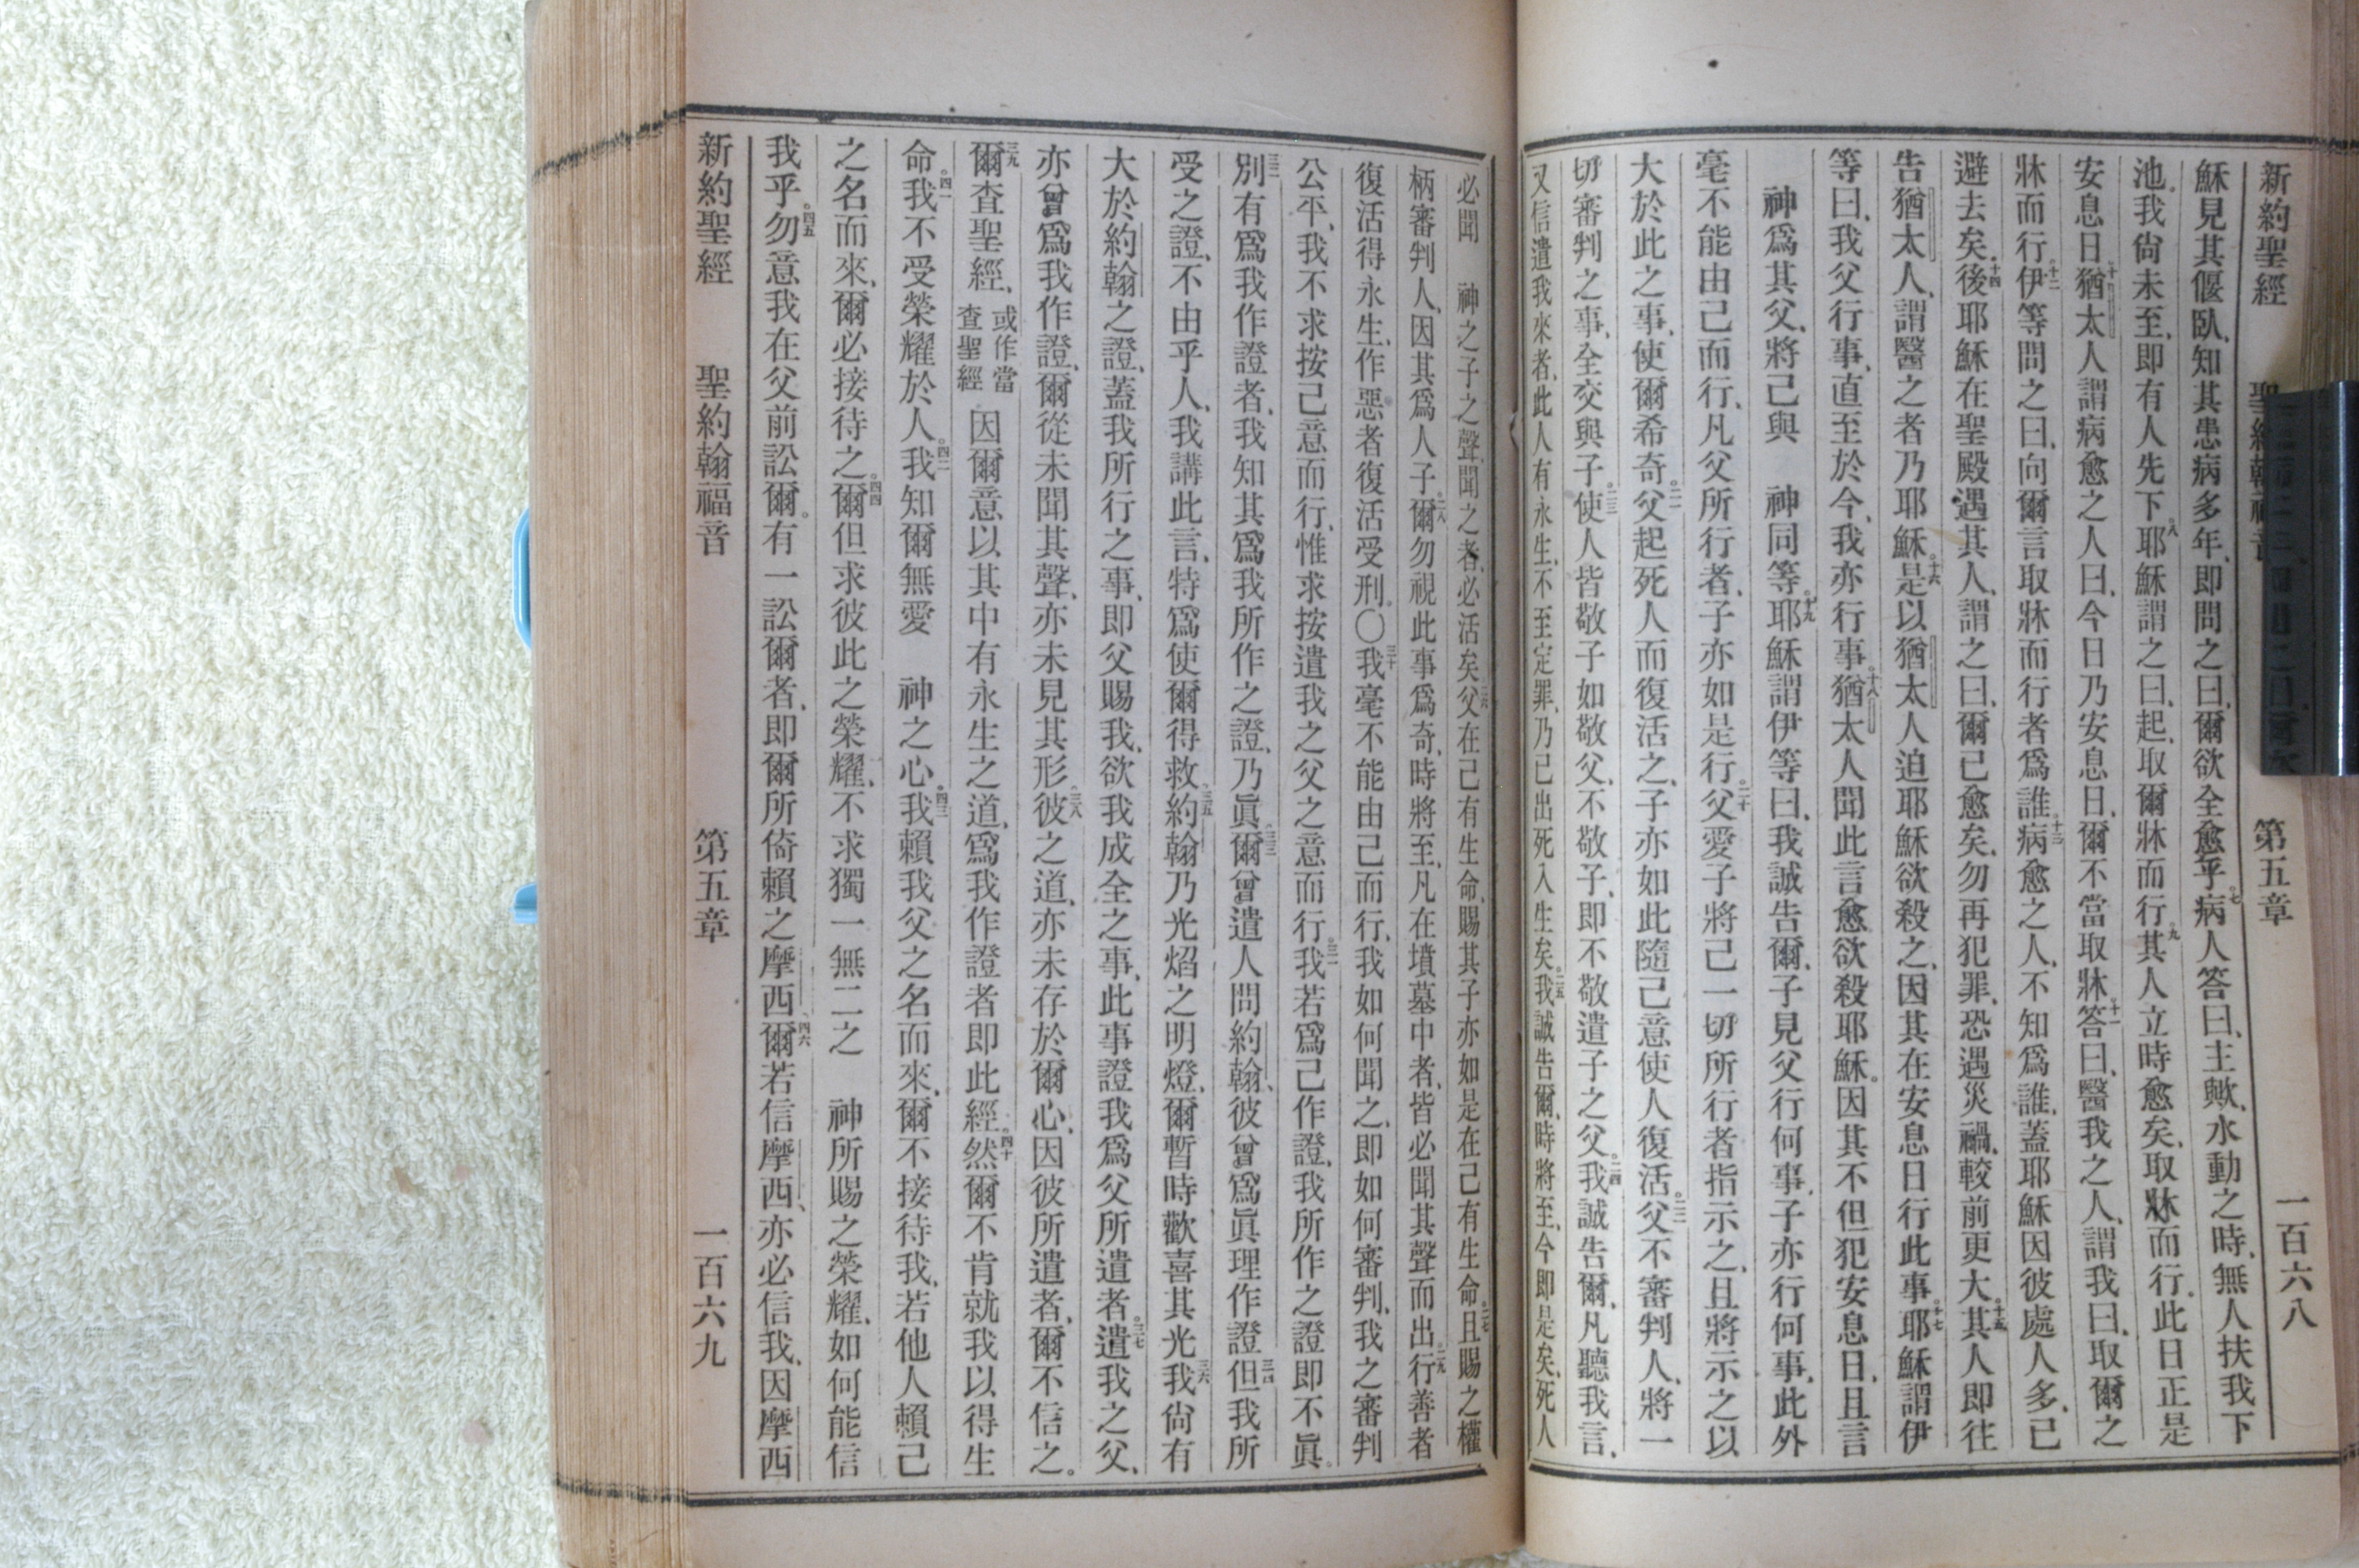 新約聖經 聖約翰福音 第五章 一百六八
穌見其偃臥、知其患病多年、即問之曰、爾欲全愈乎。七病人答曰、主歟、水動之時、無人扶我下
池。我尙未至、即有人先下。八耶穌謂之曰、起、取爾牀而行。九其人立時愈矣、取牀而行。此日正是
安息日。十猶太人謂病愈之人曰、今日乃安息日、爾不當取牀。十一答曰、醫我之人、謂我曰、取爾之
牀而行。十二伊等問之曰、向爾言取牀而行者爲誰。十三病愈之人、不知爲誰、蓋耶穌因彼處人多、已
避去矣。十四後耶穌在聖殿遇其人、謂之曰、爾已愈矣、勿再犯罪、恐遇災禍、較前更大。十五其人即往
告猶太人、謂醫之者乃耶穌。十六是以猶太人迫耶穌欲殺之、因其在安息日行此事。十七耶穌謂伊
等曰、我父行事、直至於今、我亦行事。十八猶太人聞此言愈欲殺耶穌。因其不但犯安息日、且言
神爲其父、將己與 神同等。十九耶穌謂伊等曰、我誠告爾、子見父行何事、子亦行何事、此外
毫不能由己而行、凡父所行者、子亦如是行。二十父愛子將己一切所行者指示之、且將示之以
大於此之事、使爾希奇。二一父起死人而復活之、子亦如此隨己意使人復活。二二父不審判人、將一
切審判之事、全交與子。二三使人皆敬子如敬父、不敬子、即不敬遣子之父。二四我誠告爾、凡聽我言、
又信遣我來者、此人有永生、不至定罪、乃已出死入生矣。二五我誠告爾、時將至、今即是矣、死人
必聞 神之子之聲、聞之者、必活矣。二六父在己有生命、賜其子亦如是在己有生命。二七且賜之權
柄審判人、因其爲人子。二八爾勿視此事爲奇、時將至、凡在墳墓中者、皆必聞其聲而出。二九行善者
復活得永生、作惡者復活受刑。〇三十我毫不能由己而行、我如何聞之、即如何審判、我之審判
公平、我不求按己意而行、惟求按遣我之父之意而行。三一我若爲己作證、我所作之證即不眞。
三二別有爲我作證者、我知其爲我所作之證、乃眞。三三爾曾遣人問約翰、彼曾爲眞理作證。三四但我所
受之證、不由乎人、我講此言、特爲使爾得救。三五約翰乃光焰之明燈、爾暫時歡喜其光。三六我尙有
大於約翰之證、蓋我所行之事、即父賜我、欲我成全之事、此事證我爲父所遣者。三七遣我之父、
亦曾爲我作證、爾從未聞其聲、亦未見其形。三八彼之道、亦未存於爾心、因彼所遣者、爾不信之。
三九爾查聖經、或作當查聖經 因爾意以其中有永生之道、爲我作證者即此經。四十然爾不肯就我以得生
命。四一我不受榮耀於人。四二我知爾無愛 神之心。四三我賴我父之名而來、爾不接待我、若他人賴己
之名而來、爾必接待之。四四爾但求彼此之榮耀、不求獨一無二之 神所賜之榮耀、如何能信
我乎。四五勿意我在父前訟爾。有一訟爾者、即爾所倚賴之摩西。四六爾若信摩西、亦必信我、因摩西
新約聖經 聖約翰福音 第五章 一百六九